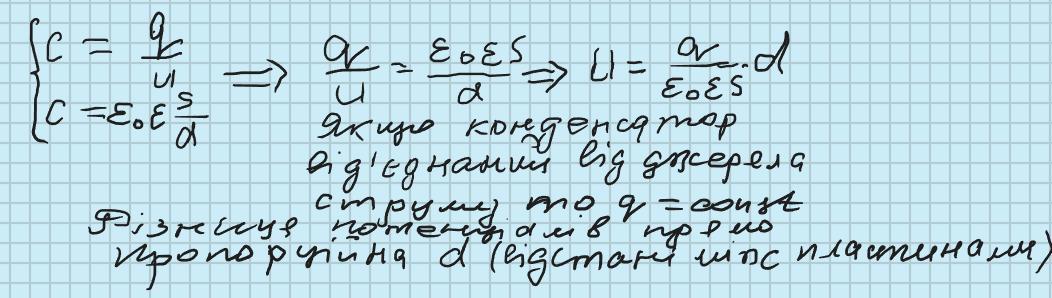 { C = q/U ⟹ q/U = ε₀εS/d ⟹ U = q/ε₀εS · d
C = ε₀ε S/d
Якщо конденсатор
від'єднаний від джерела
струму то q = const
Різниця потенціалів прямо
пропорційна d (відстані між пластинами)